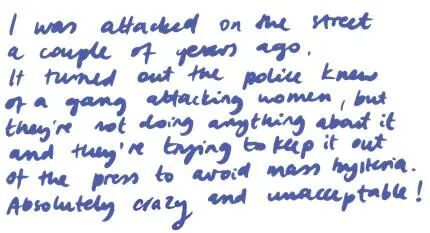 I was attacked on the street
a couple of years ago.
It turned out the police knew
of a gang attacking women, but
they're not doing anything about it
and they're trying to keep it out
of the press to avoid mass hysteria.
Absolutely crazy and unacceptable!